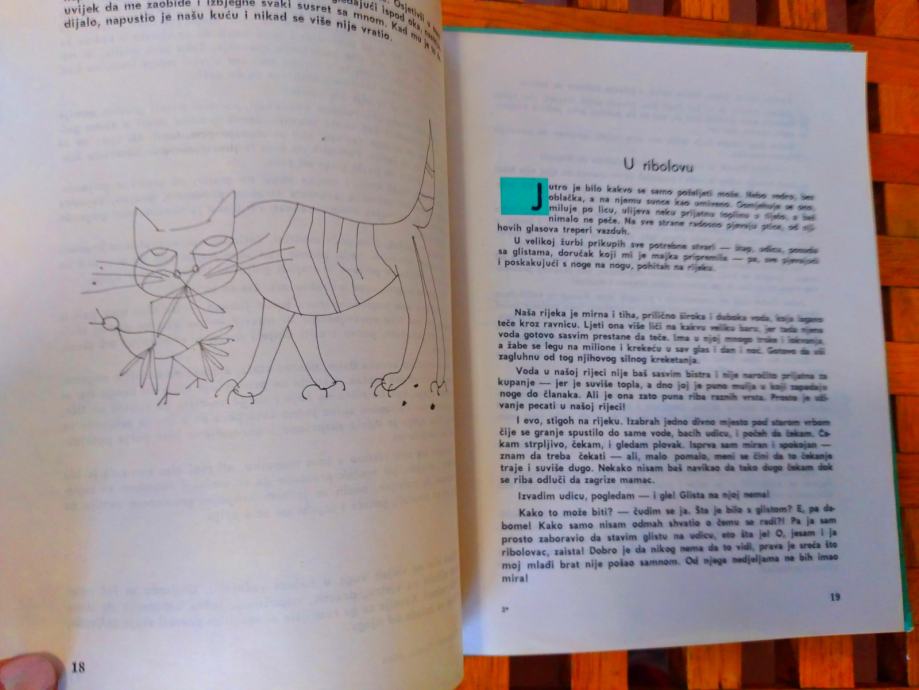 uvijek da me zaobiđe i izbjegne svaki susret sa mnom. Kad mu je
dijalo, napustio je našu kuću i nikad se više nije vratio.
18
U ribolovu
Jutro je bilo kakvo se samo poželjeti može. Nebo vedro, bez
oblačka, a na njemu sunce kao umiveno.
miluje po licu, ulijeva neku prijatnu toplinu u tijelo, a baš
nimalo ne peče. Na sve strane radosno pjevaju ptice, od nji-
hovih glasova treperi vazduh.
U velikoj žurbi prikupih sve potrebne stvari — štap, udicu, posudu
sa glistama, doručak koji mi je majka pripremila — pa, sve pjevajući
i poskakujući s noge na nogu, pohitah na rijeku.
Naša rijeka je mirna i tiha, prilično široka i duboka voda, koja lagano
teče kroz ravnicu. Ljeti ona više liči na kakvu veliku baru, jer tada njena
voda gotovo sasvim prestane da teče. Ima u njoj mnogo trske i lokvanja,
a žabe se legu na milione i krekeću u sav glas i dan i noć. Gotovo da uši
zagluhnu od tog njihovog silnog kreketanja.
Voda u našoj rijeci nije baš sasvim bistra i nije naročito prijatna za
kupanje — jer je suviše topla, a dno joj je puno mulja u koji zapadaju
noge do članaka. Ali je ona zato puna riba raznih vrsta. Prosto je uži-
vanje pecati u našoj rijeci!
I evo, stigoh na rijeku. Izabrah jedno divno mjesto pod starom vrbom
čije se granje spustilo do same vode, bacih udicu, i počeh da čekam. Če-
kam strpljivo, čekam, i gledam plovak. Isprva sam miran i spokojan —
znam da treba čekati — ali, malo pomalo, meni se čini da to čekanje
traje i suviše dugo. Nekako nisam baš navikao da tako dugo čekam dok
se riba odluči da zagrize mamac.
Izvadim udicu, pogledam — i gle! Glista na njoj nema!
Kako to može biti? — čudim se ja. Šta je bilo s glistom? E, pa da-
bome! Kako samo nisam odmah shvatio o čemu se radi?! Pa ja sam
prosto zaboravio da stavim glistu na udicu, eto šta je! O, jesam i ja
ribolovac, zaista! Dobro je da nikog nema da to vidi, prava je sreća što
moj mlađi brat nije pošao samnom. Od njega nedjeljama ne bih imao
mira!
2*
19